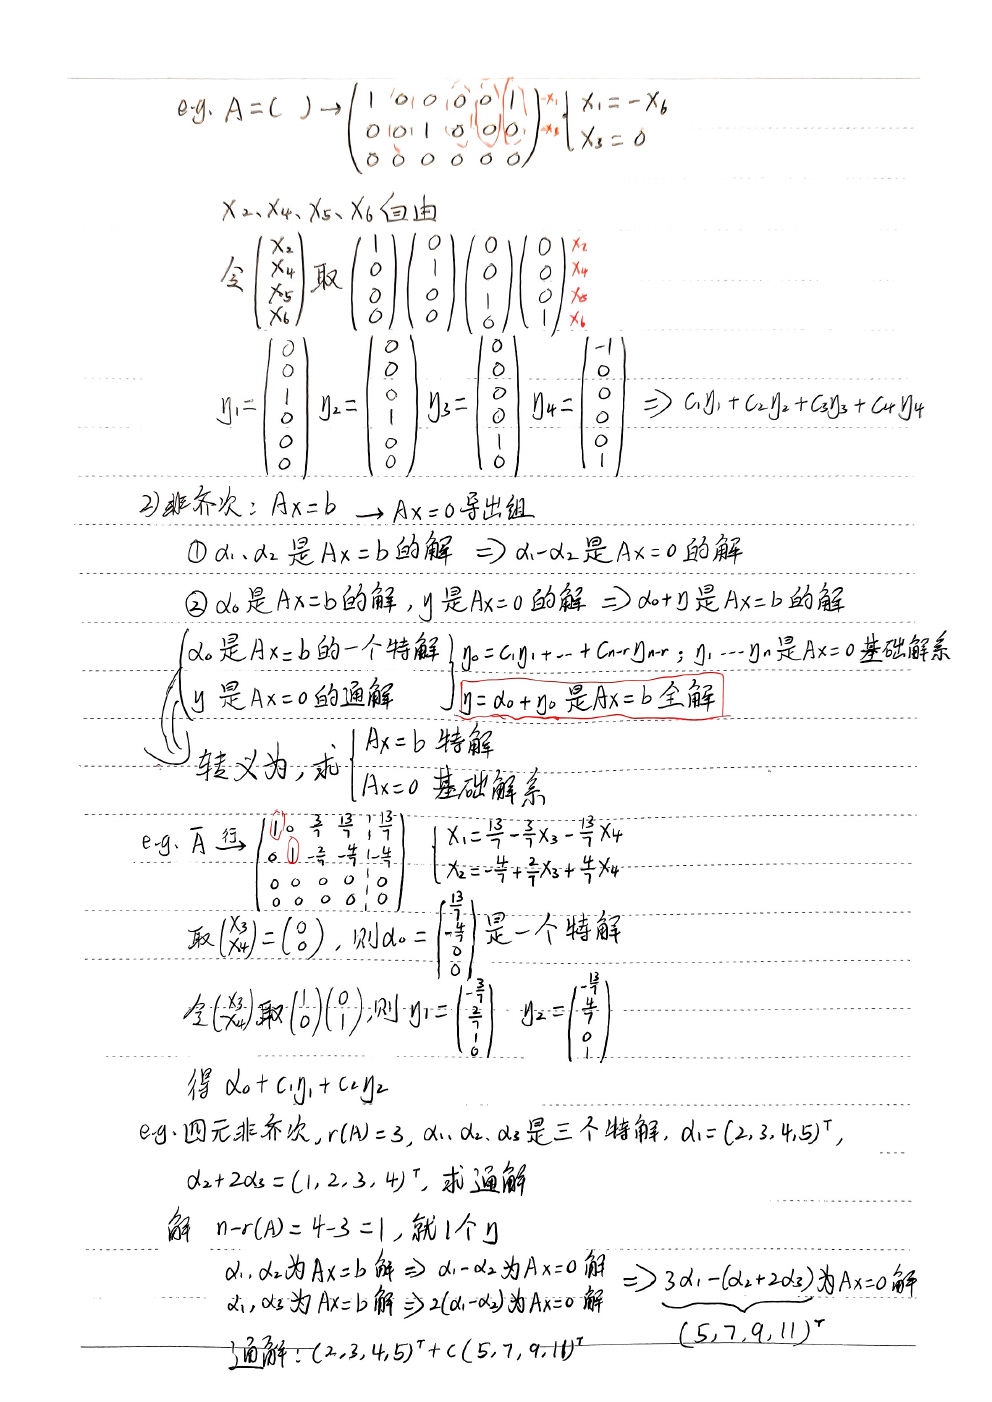 e.g. A=( ) → (1 0 0 0 0 1; 0 0 1 0 0 0; 0 0 0 0 0 0) -x₁ -x₃ { x₁=-x₆ x₃=0
x₂、x₄、x₅、x₆ 自由
令 (x₂ x₄ x₅ x₆) 取 (1 0 0 0) (0 1 0 0) (0 0 1 0) (0 0 0 1) x₂ x₄ x₅ x₆
η₁=(0 0 1 0 0 0) η₂=(0 0 0 1 0 0) η₃=(0 0 0 0 1 0) η₄=(-1 0 0 0 0 1) ⇒ C₁η₁+C₂η₂+C₃η₃+C₄η₄
2)非齐次: Ax=b → Ax=0 导出组
① α₁、α₂ 是 Ax=b 的解 ⇒ α₁-α₂ 是 Ax=0 的解
② α₀ 是 Ax=b 的解, η 是 Ax=0 的解 ⇒ α₀+η 是 Ax=b 的解
{ α₀ 是 Ax=b 的一个特解 } η₀=C₁η₁+…+Cn-rηn-r; η₁…ηn 是 Ax=0 基础解系
η 是 Ax=0 的通解 η=α₀+η₀ 是 Ax=b 全解
转义为, 求 { Ax=b 特解
Ax=0 基础解系
e.g. Ā 行→ (1 0 3/7 13/7 13/7; 0 1 -2/7 -4/7 -4/7; 0 0 0 0 0; 0 0 0 0 0) { x₁=13/7-3/7x₃-13/7x₄
x₂=-4/7+2/7x₃+4/7x₄
取 (x₃ x₄)=(0 0), 则 α₀=(13/7 -4/7 0 0) 是一个特解
令 (x₃ x₄) 取 (1 0)(0 1), 则 η₁=(-3/7 2/7 1 0) η₂=(-13/7 4/7 0 1)
得 α₀+C₁η₁+C₂η₂
e.g. 四元非齐次, r(A)=3, α₁、α₂、α₃ 是三个特解. α₁=(2,3,4,5)ᵀ,
α₂+2α₃=(1,2,3,4)ᵀ, 求通解
解 n-r(A)=4-3=1, 就1个η
α₁、α₂ 为 Ax=b 解 ⇒ α₁-α₂ 为 Ax=0 解
α₁,α₃ 为 Ax=b 解 ⇒ 2(α₁-α₂) 为 Ax=0 解 ⇒ 3α₁-(α₂+2α₃) 为 Ax=0 解
(5,7,9,11)ᵀ
通解: (2,3,4,5)ᵀ+C(5,7,9,11)ᵀ